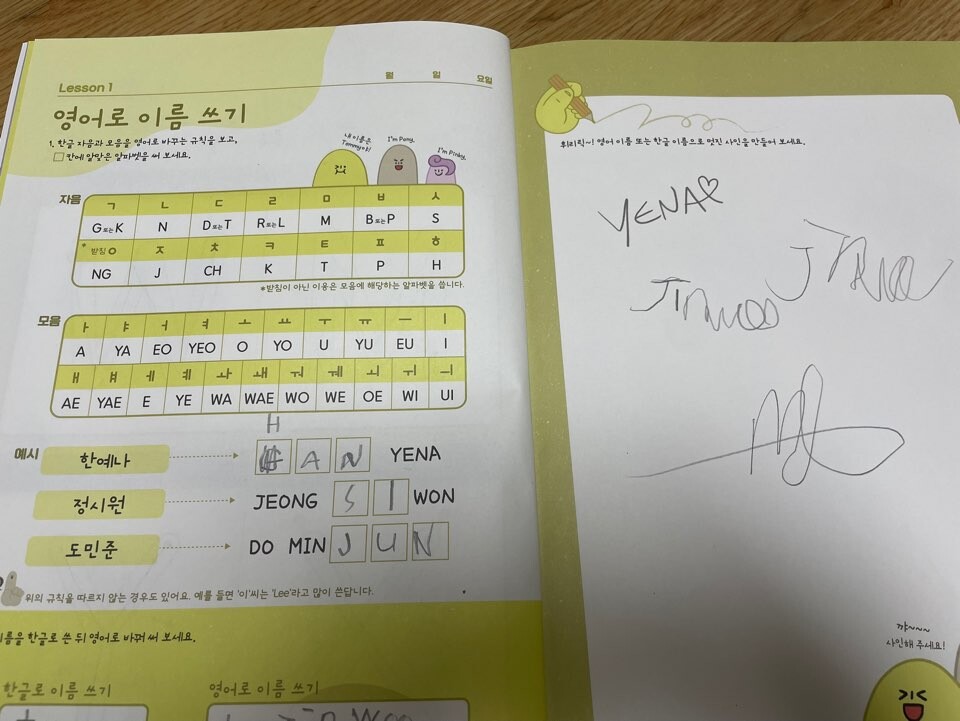 Lesson 1
월 일 요일
영어로 이름 쓰기
1. 한글 자음과 모음을 영어로 바꾸는 규칙을 보고,
□ 칸에 알맞은 알파벳을 써 보세요.
내 이름은
Tommy야!
I'm Pony.
I'm Pinky.
자음
ㄱ ㄴ ㄷ ㄹ ㅁ ㅂ ㅅ
G또는K N D또는T R또는L M B또는P S
*받침ㅇ ㅈ ㅊ ㅋ ㅌ ㅍ ㅎ
NG J CH K T P H
*받침이 아닌 이응은 모음에 해당하는 알파벳을 씁니다.
모음
ㅏ ㅑ ㅓ ㅕ ㅗ ㅛ ㅜ ㅠ ㅡ ㅣ
A YA EO YEO O YO U YU EU I
ㅐ ㅒ ㅔ ㅖ ㅘ ㅙ ㅝ ㅞ ㅚ ㅟ ㅢ
AE YAE E YE WA WAE WO WE OE WI UI
H
예시 한예나 H A N YENA
정시원 JEONG S I WON
도민준 DO MIN J U N
위의 규칙을 따르지 않는 경우도 있어요. 예를 들면 '이'씨는 'Lee'라고 많이 쓴답니다.
이름을 한글로 쓴 뒤 영어로 바꿔 써 보세요.
한글로 이름 쓰기 영어로 이름 쓰기
Jin Woo
휘리릭~! 영어 이름 또는 한글 이름으로 멋진 사인을 만들어 보세요.
YENA♡
JINWOO
꺄~~~~
사인해 주세요!